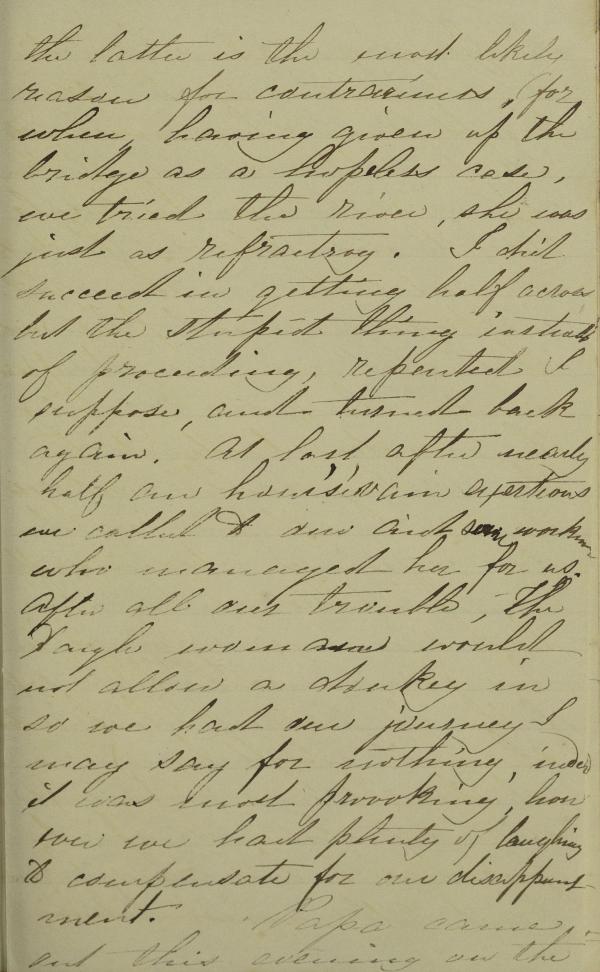 the latter is the most likely
reason for contrariness, (for
when, having given up the
bridge as a hopeless case,
we tried the river, she was
just as refractory. I did
succeed in getting half across
but the stupid thing instead
of proceeding, repented I
suppose, and turned back
again. At last after nearly
half an hour's vain exertions
we called to our aid some workmen
who managed her for us.
After all our trouble, the
woman would
not allow a donkey in
so we had our journey I
may say for nothing, indeed
it was most provoking, how
ever we had plenty of laughing
to compensate for our disappoint-
ment. Papa came
out this evening on the